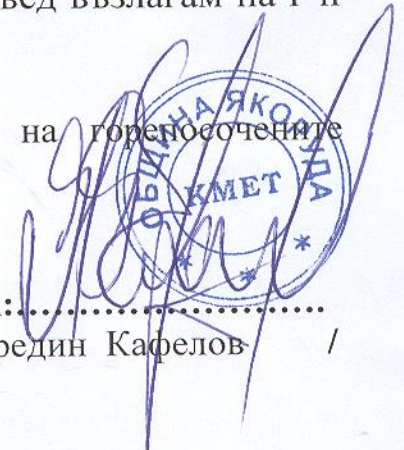 възлагам на г-н
на горепосочените
ОБЩИНА ЯКОРУДА
КМЕТ
:..............................
Кафелов /